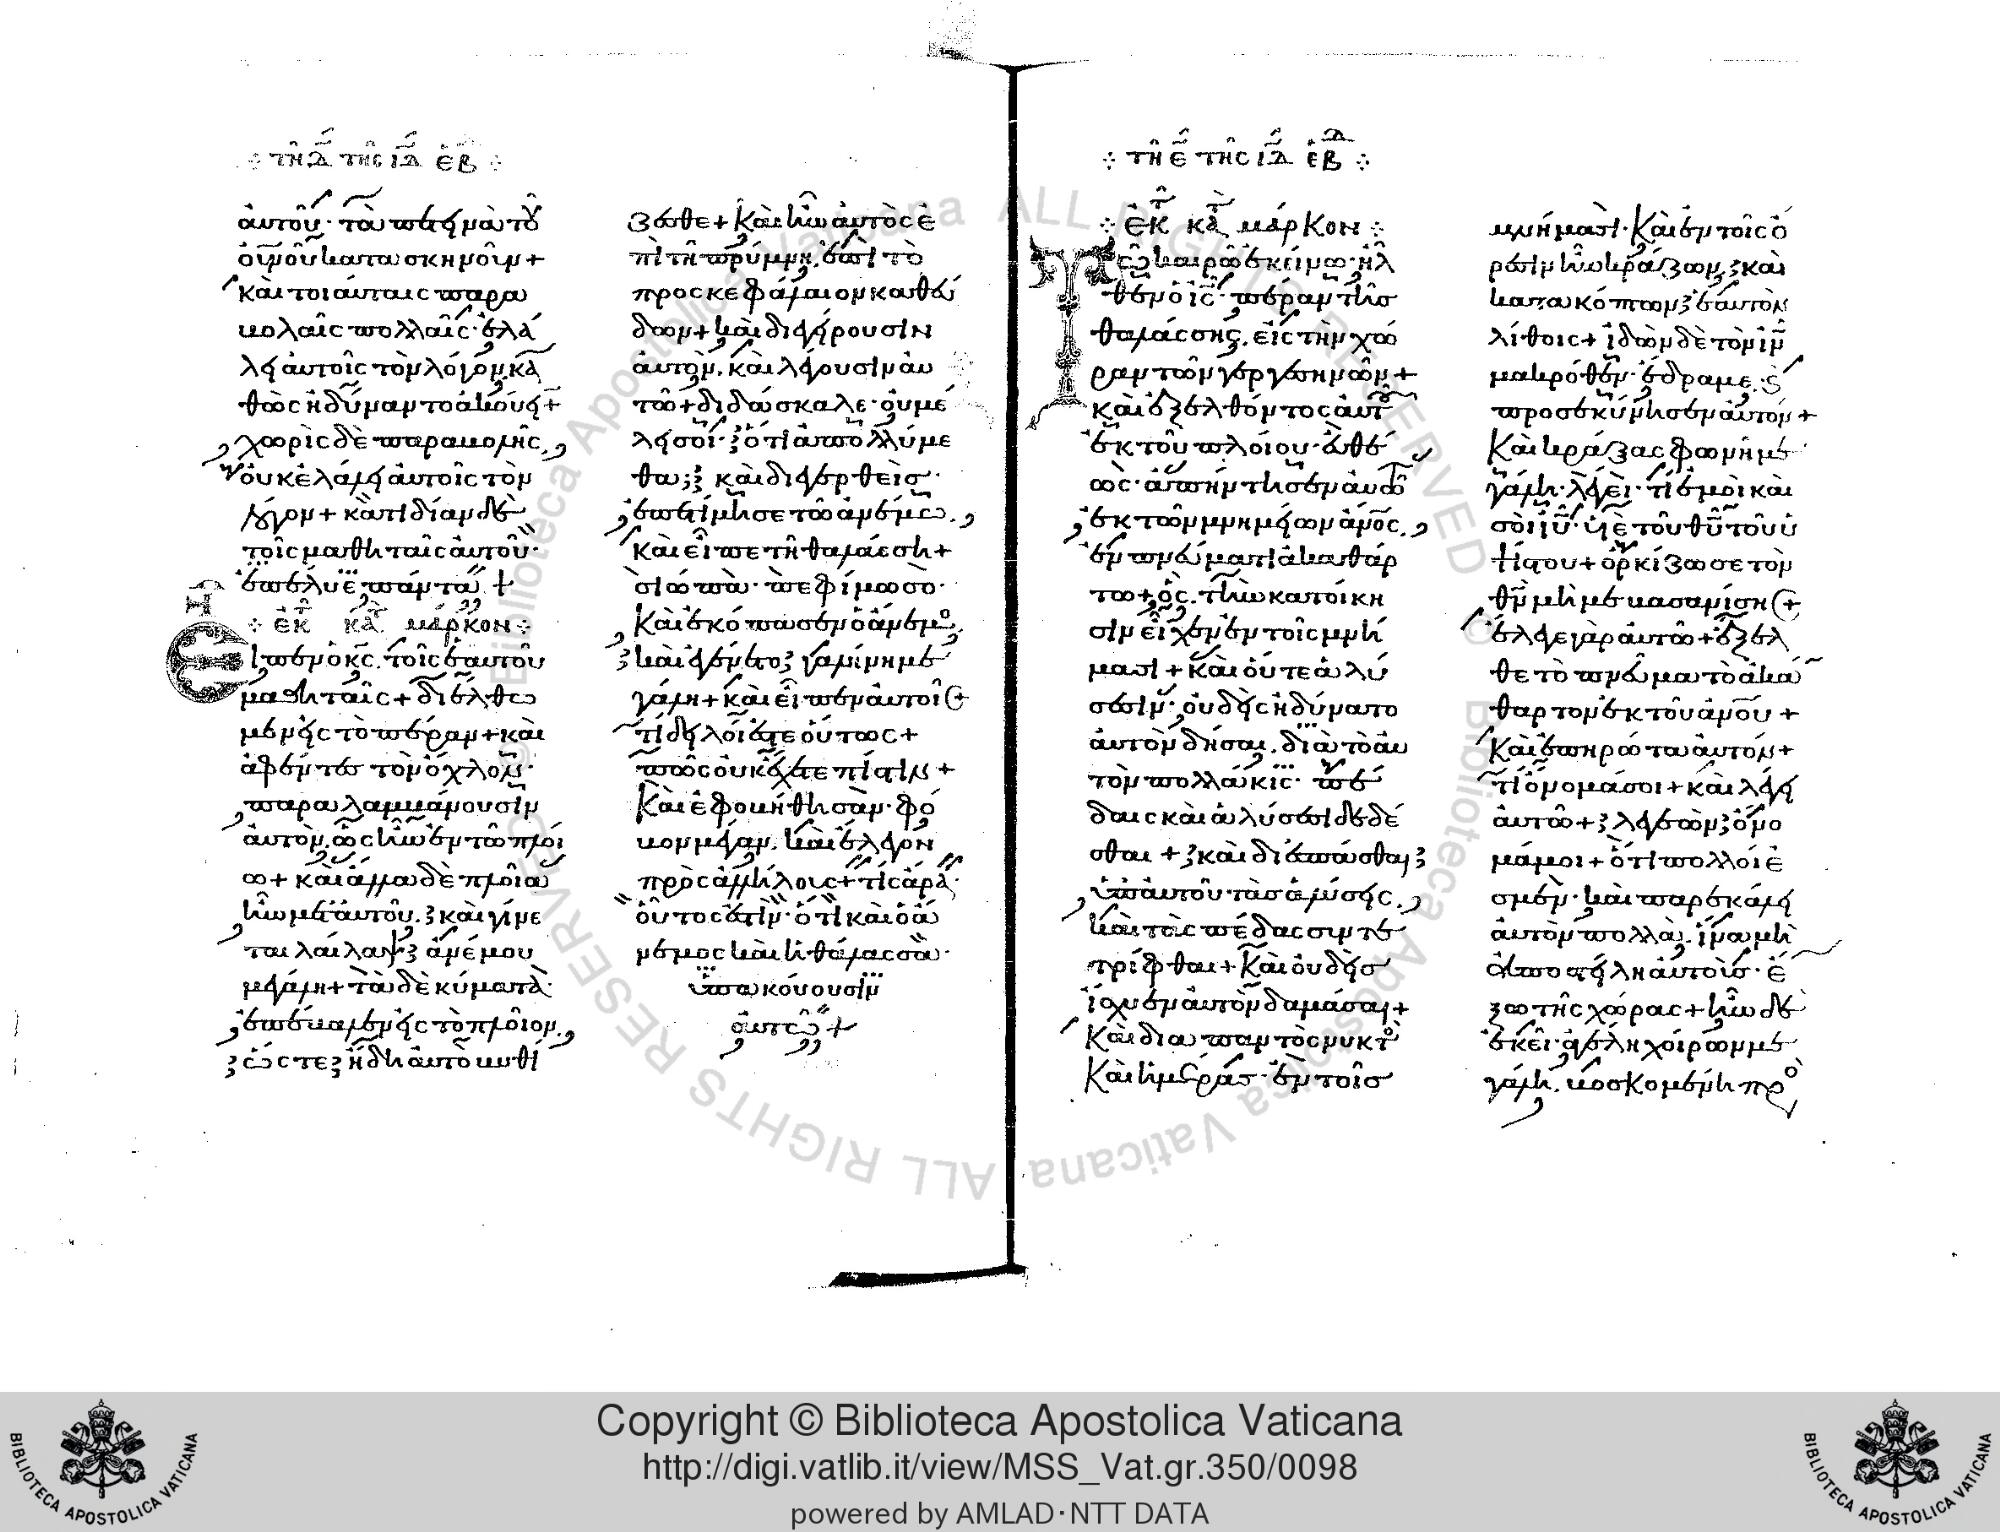 τῆ δ τῆς ιδ ἑβ
αὐτοῦ· τὰ πετεινὰ τοῦ
οὐνοῦ κατασκηνοῦν +
καὶ τοιαύταις παρα
βολαῖς πολλαῖς· ἐλά
λει αὐτοῖς τὸν λόγον, κα
θὼς ἠδύναντο ἀκούειν +
χωρὶς δὲ παραβολῆς,
οὐκ ἐλάλει αὐτοῖς τὸν
λόγον + κατιδίαν δὲ
τοῖς μαθηταῖς αὐτοῦ·
ἐπέλυε πάντα +
ἐκ τ κατ μάρκον
Εἶπεν ὁ κς, τοῖς ἑαυτοῦ
μαθηταῖς + διέλθω
μεν εἰς τὸ πέραν + καὶ
ἀφέντες τὸν ὄχλον·
παραλαμβάνουσιν
αὐτὸν, ὡς ἦν ἐν τῶ πλοί
ω + καὶ ἄλλα δὲ πλοῖα
ἦν μετ αὐτοῦ, καὶ γίνε
ται λαίλαψ ἀνέμου
μεγάλη + τὰ δὲ κύματα·
ἐπέβαλεν εἰς τὸ πλοῖον,
ὥστε ἤδη αὐτὸ βυθί
ζεσθε + Καὶ ἦν αὐτὸς ἐ
πὶ τῆ πρύμνη, ἐπὶ τὸ
προσκεφάλαιον καθεύ
δων + καὶ διεγείρουσιν
αὐτὸν, καὶ λέγουσιν αὐ
τῶ + διδάσκαλε· οὐ μέ
λει σοι· ὅτι ἀπολλύμε
θα; καὶ διεγερθεὶς·
ἐπετίμησε τῶ ἀνέμω,
καὶ εἶπε τῆ θαλάσση +
σιώπα· πεφίμωσο·
Καὶ ἐκόπασεν ὁ ἄνεμος,
καὶ ἐγένετο γαλήνη με
γάλη + καὶ εἶπεν αὐτοῖς +
τί δειλοί ἐστε οὕτως +
πῶς οὐκ ἔχετε πίστιν +
Καὶ ἐφοβήθησαν· φό
βον μέγαν, καὶ ἔλεγον
πρὸς ἀλλήλους + τίς ἄρα
οὗτός ἐστιν· ὅτι καὶ ὁ ἄ
νεμος καὶ ἡ θάλασσα·
ὑπακούουσιν
αὐτῶ +
τῆ ε τῆς ιδ ἑβδ
ἐκ τ κατ μάρκον
Τῶ καιρῶ ἐκείνω· ἦλ
θεν ὁ ις· πέραν τῆς
θαλάσσης, εἰς τὴν χώ
ραν τῶν γεργεσηνῶν +
καὶ ἐξελθόντος αὐτοῦ
ἐκ τοῦ πλοίου· εὐθέ
ως· ἀπήντησεν αὐτῶ
ἐκ τῶν μνημείων ἄνος,
ἐν πνεύματι ἀκαθάρ
τω + ὃς, τὴν κατοίκη
σιν εἶχεν ἐν τοῖς μνή
μασι + καὶ οὔτε ἁλύ
σεσιν· οὐδεὶς ἠδύνατο
αὐτὸν δῆσαι, διὰ τὸ αὐ
τὸν πολλάκις· πέ
δαις καὶ ἁλύσεσι δεδέ
σθαι + καὶ διεσπάσθαι
ὑπ αὐτοῦ τὰς ἁλύσεις,
καὶ τὰς πέδας συντε
τρίφθαι + Καὶ οὐδεὶς
ἴσχυεν αὐτὸν δαμάσαι +
Καὶ διαπαντὸς νυκτὸς
Καὶ ἡμέρας· ἐν τοῖς
μνήμασι· Καὶ ἐν τοῖς ὄ
ρεσιν ἦν κράζων, καὶ
κατακόπτων ἑαυτὸν
λίθοις + ἰδὼν δὲ τὸν ιν
μακρόθεν· ἔδραμε, καὶ
προσεκύνησεν αὐτὸν +
Καὶ κράξας φωνῆ με
γάλη· λέγει· τί ἐμοὶ καὶ
σοὶ ιυ· υἱὲ τοῦ θυ τοῦ ὑ
ψίστου + ὁρκίζω σε τὸν
θν μή με βασανίσης +
ἔλεγε γὰρ αὐτῶ + ἔξελ
θε τὸ πνεῦμα τὸ ἀκά
θαρτον ἐκ τοῦ ἀνου +
Καὶ ἐπηρώτα αὐτόν +
τί ὄνομά σοι + καὶ λέγει
αὐτῶ + λεγεὼν ὄνο
μά μοι + ὅτι πολλοί ἐ
σμεν· καὶ παρεκάλει
αὐτὸν πολλὰ, ἵνα μὴ
ἀποστείλη αὐτοὺς· ἔ
ξω τῆς χώρας + ἦν δὲ
ἐκεῖ· ἀγέλη χοίρων με
γάλη, βοσκομένη πρὸ
Copyright © Biblioteca Apostolica Vaticana
http://digi.vatlib.it/view/MSS_Vat.gr.350/0098
powered by AMLAD·NTT DATA